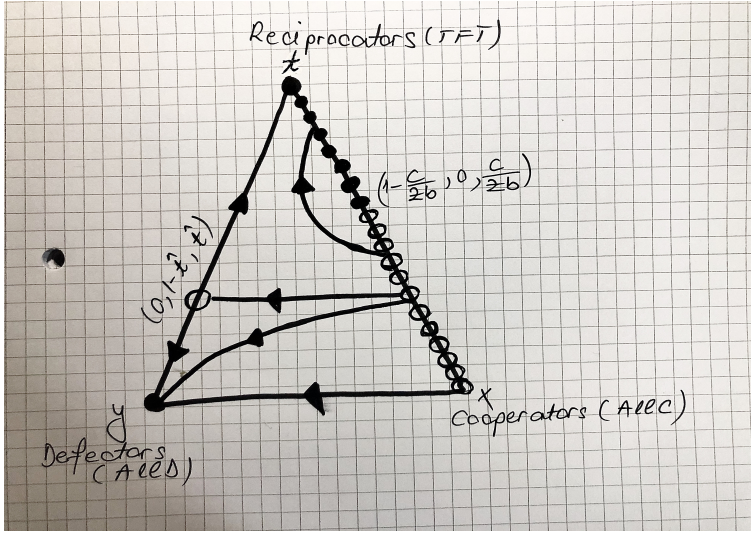 Reciprocators (TFT)
t
(1-c/zb, 0, c/zb)
(0, 1-t̂, t̂)
x
Cooperators (AllC)
y
Defectors
(AllD)